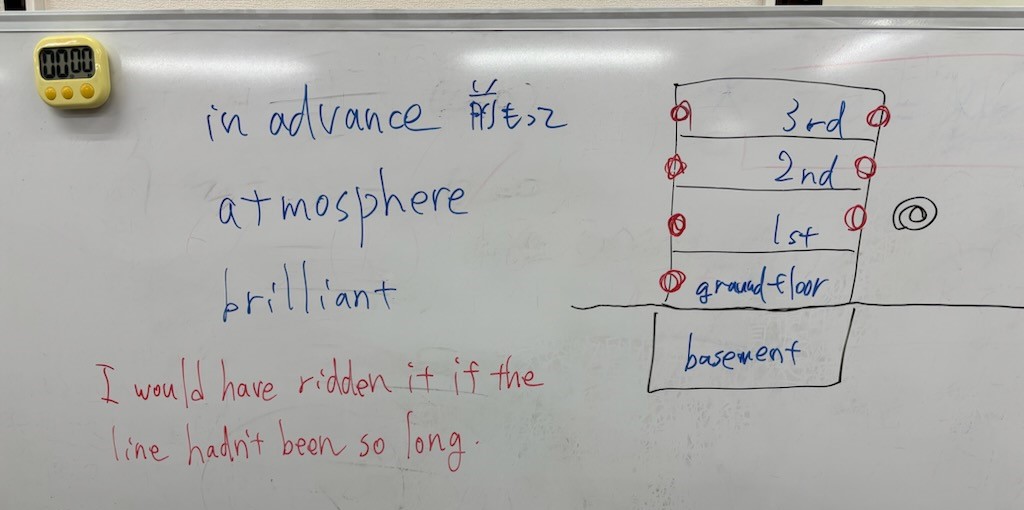 0000
in advance 前もって
atmosphere
brilliant
I would have ridden it if the
line hadn't been so long.
3rd
2nd
1st
ground floor
basement